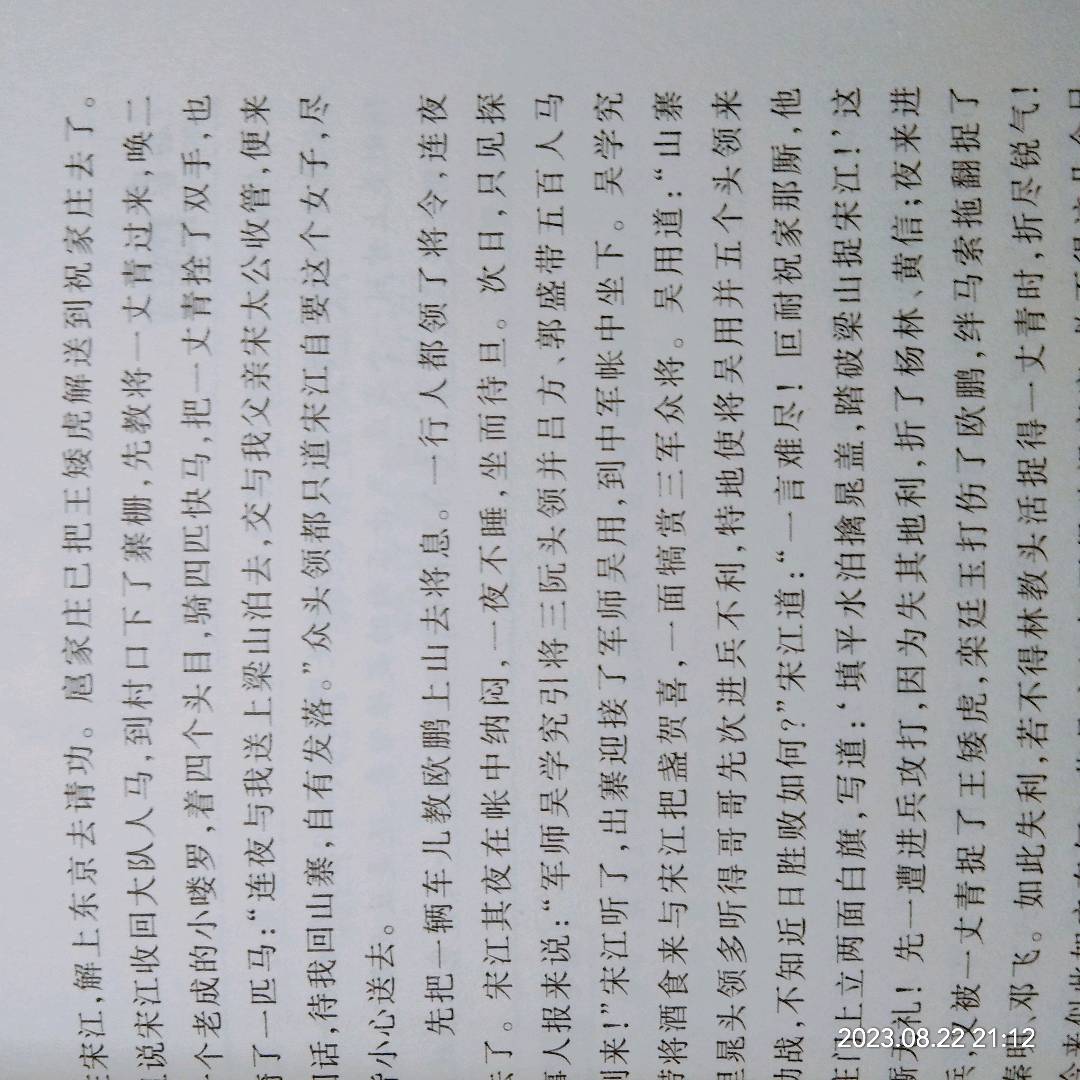 宋江,解上东京去请功。扈家庄已把王矮虎解送到祝家庄去了。
说宋江收回大队人马,到村口下了寨栅,先教将一丈青过来,唤二
个老成的小喽罗,着四个头目,骑四匹快马,把一丈青拴了双手,也
了一匹马:“连夜与我送上梁山泊去,交与我父亲宋太公收管,便来
话,待我回山寨,自有发落。”众头领都只道宋江自要这个女子,尽
小心送去。
先把一辆车儿教欧鹏上山去将息。一行人都领了将令,连夜
了。宋江其夜在帐中纳闷,一夜不睡,坐而待旦。次日,只见探
人报来说:“军师吴学究引将三阮头领并吕方、郭盛带五百人马
到来!”宋江听了,出寨迎接了军师吴用,到中军帐中坐下。吴学究
带将酒食来与宋江把盏贺喜,一面犒赏三军众将。吴用道:“山寨
晁头领多听得哥哥先次进兵不利,特地使将吴用并五个头领来
助战,不知近日胜败如何?”宋江道:“一言难尽!叵耐祝家那厮,他
庄门上立两面白旗,写道:‘填平水泊擒晁盖,踏破梁山捉宋江!’这
厮无礼!先一遭进兵攻打,因为失其地利,折了杨林、黄信;夜来进
兵,又被一丈青捉了王矮虎,栾廷玉打伤了欧鹏,绊马索拖翻捉了
秦明、邓飞。如此失利,若不得林教头活捉得一丈青时,折尽锐气!
2023.08.22 21:12